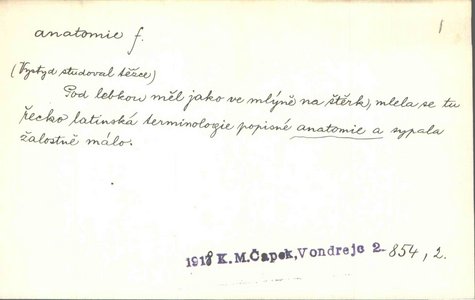 anatomie f.
1
(Vystyd studoval těžce)
Pod lebkou měl jako ve mlýně na štěrk, mlela se tu
řecko latinská terminologie popisné anatomie a sypala
žalostně málo.
1918 K. M. Čapek, Vondrejc 2-854, 2.